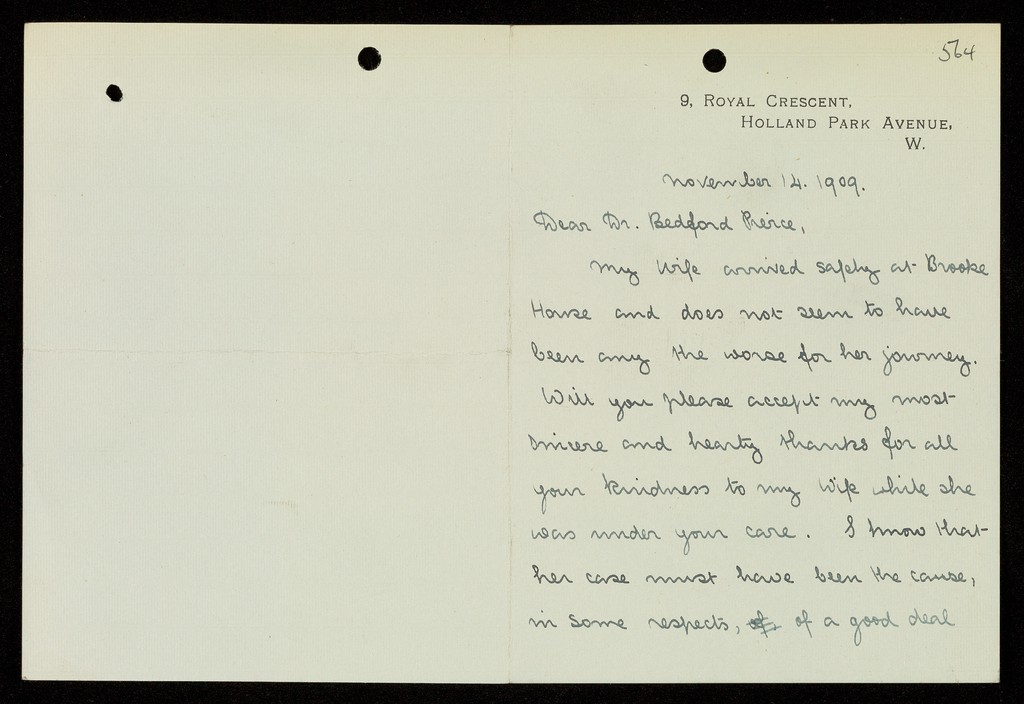 564
9, ROYAL CRESCENT,
HOLLAND PARK AVENUE,
W.
November 14. 1909.
Dear Dr. Bedford Pierce,
My wife arrived safely at Brooke
House and does not seem to have
been any the worse for her journey.
Will you please accept my most
sincere and hearty thanks for all
your kindness to my wife while she
was under your care. I know that
her case must have been the cause,
in some respects, of of a good deal